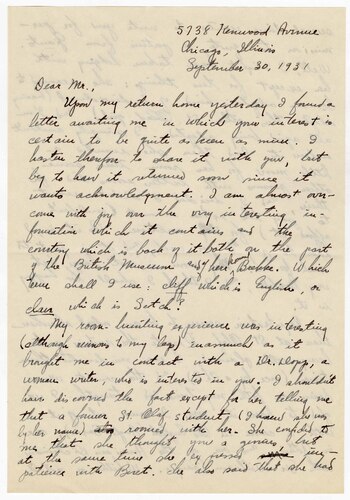 5738 Kenwood Avenue
Chicago, Illinois
September 30, 1931
Dear Mr.,
Upon my return home yesterday I found a
letter awaiting me in which your interest is
certain to be quite as keen as mine. I
hasten therefore to share it with you, but
beg to have it returned soon since it
wants acknowledgment. I am almost over-
come with joy over the very interesting in-
formation which it contains and the
courtesy which is back of it both on the part
of the British Museum and of here. Which
term shall I use: cleff which is English, or
which is Scotch?
My room-hunting experience was interesting
(although ruinous to my legs) inasmuch as it
brought me in contact with a Dr. , a
woman writer, who is interested in you. I shouldn't
have discovered the fact except for her telling me
that a former St. Olaf student (I knew she was
by her name) roomed with her. She confided to
me that she thought you a genius but
at the same time she expressed
patience with Beret. She also said that she had